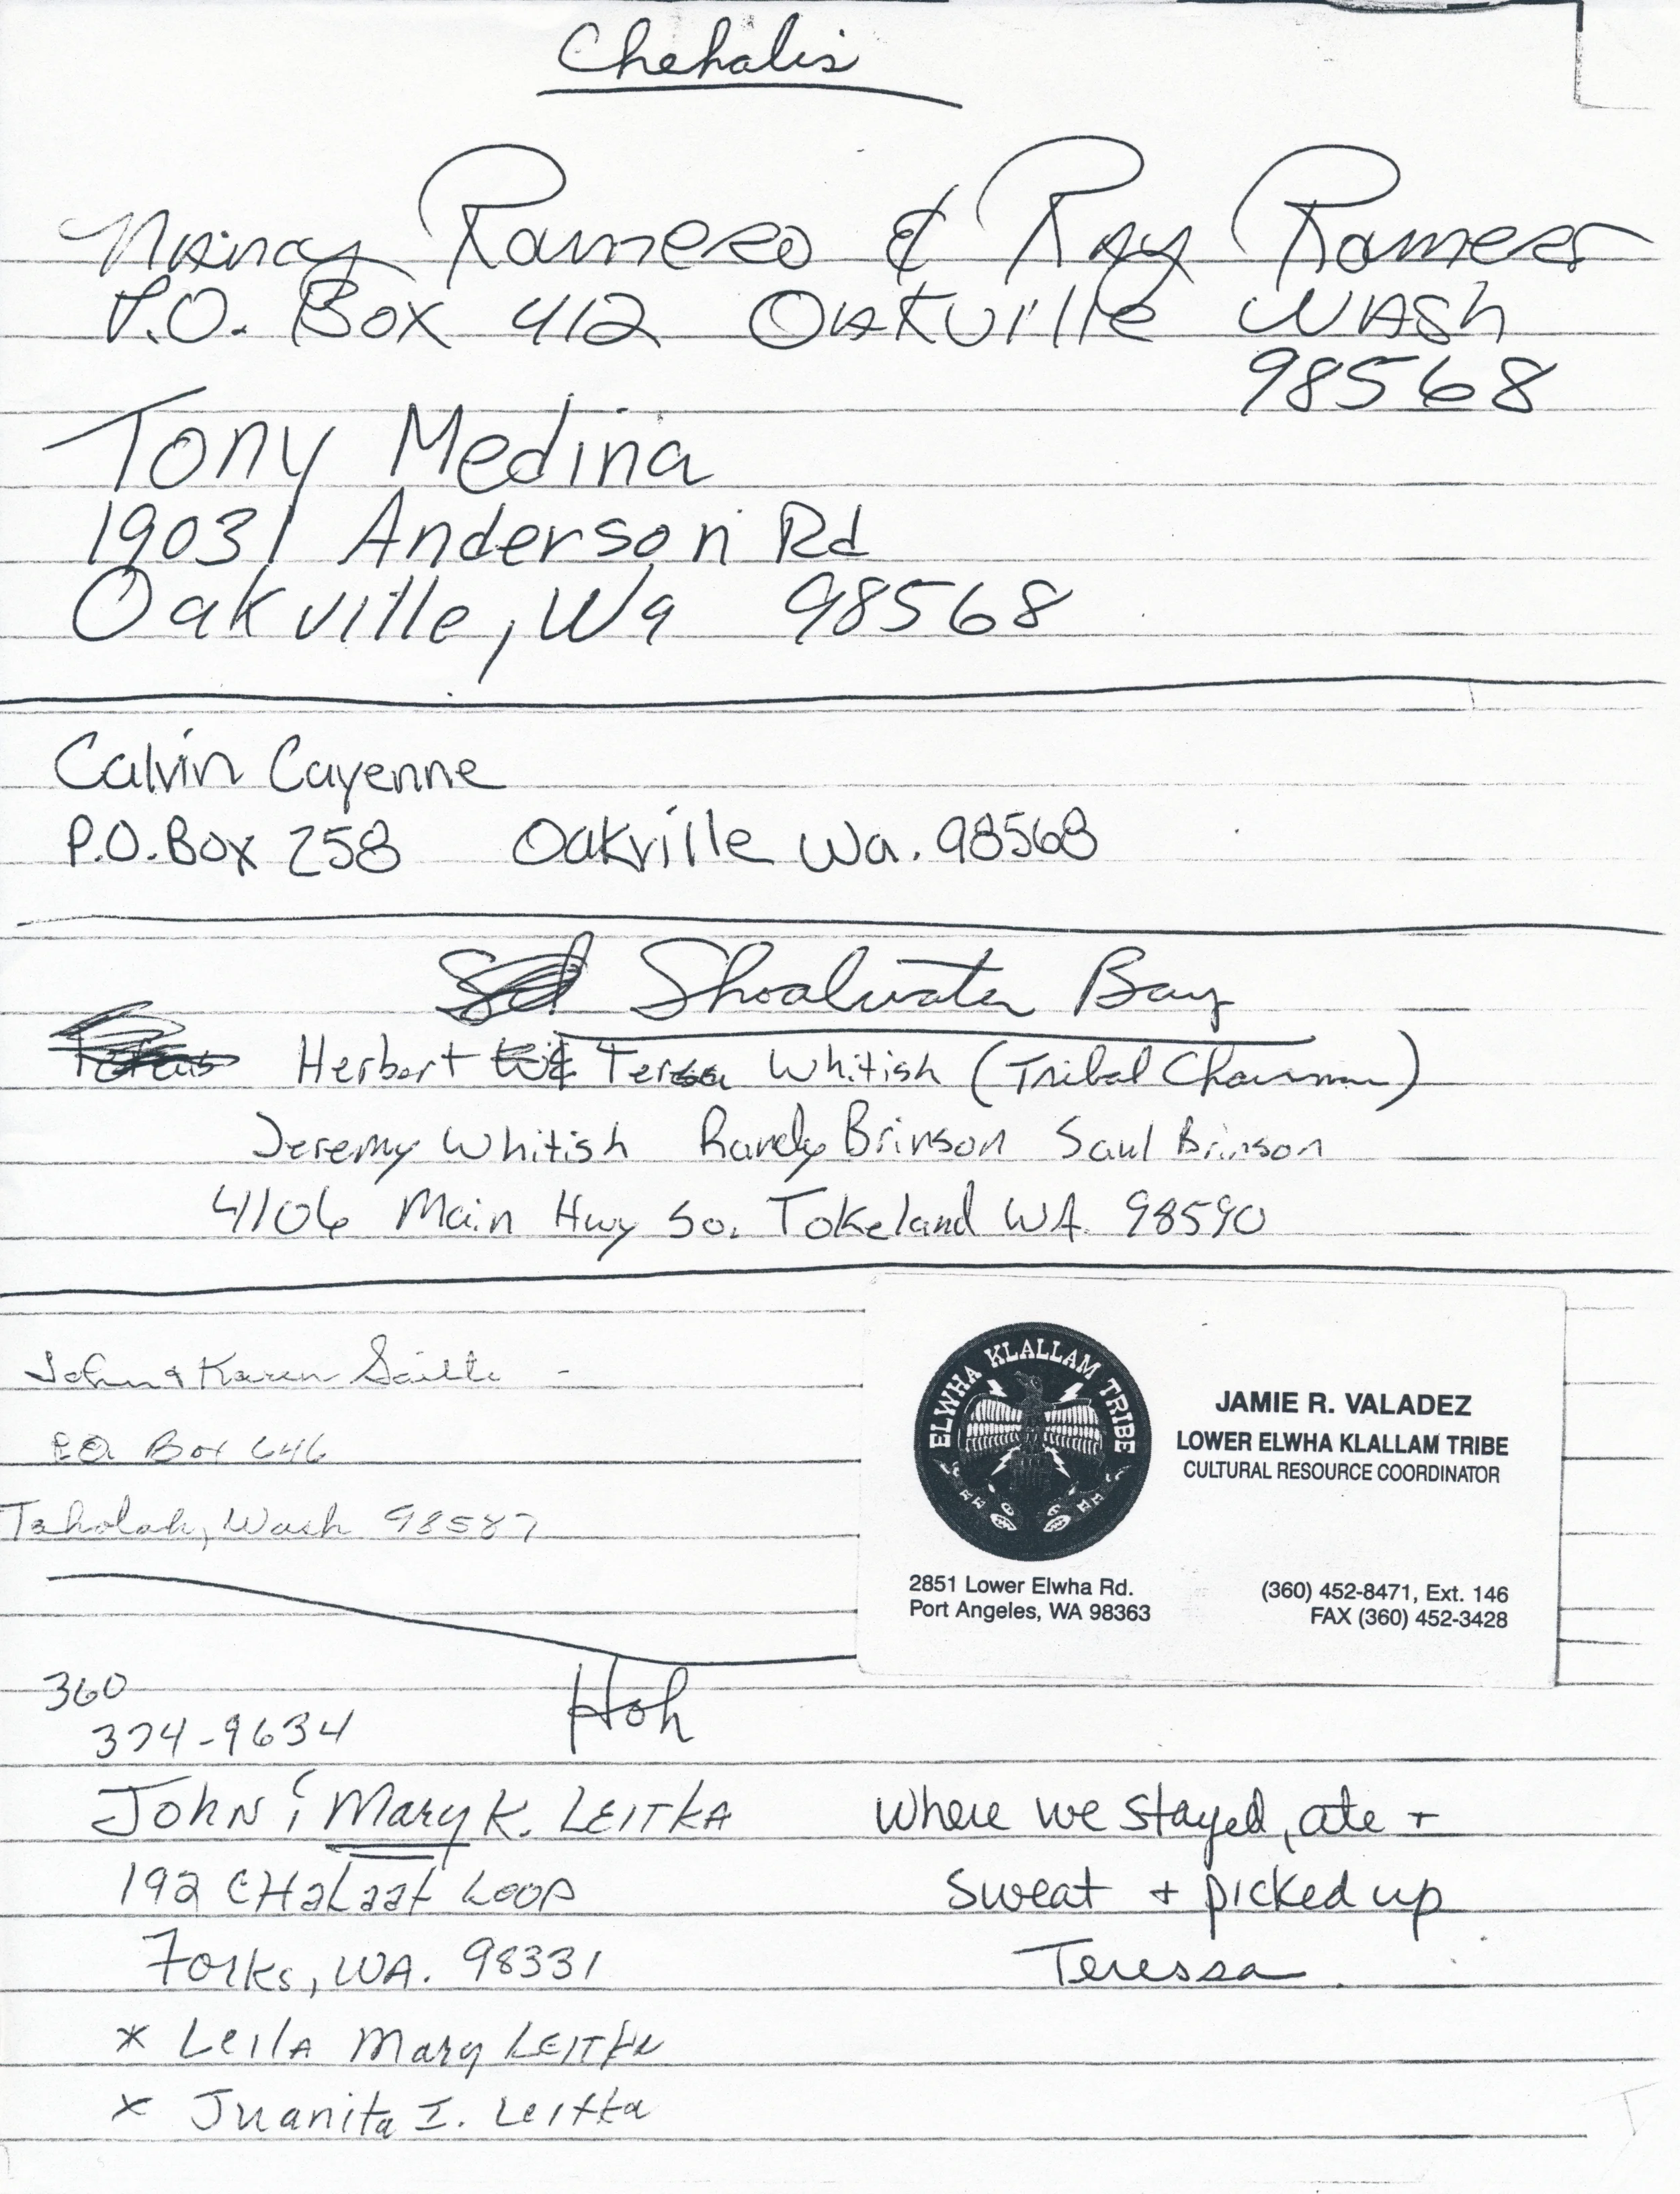 Chehalis
Nancy Ramero & Ray Ramero
P.O. Box 412 Oakville WASh
98568
Tony Medina
19031 Anderson Rd
Oakville, Wa 98568
Calvin Cayenne
P.O. Box 258 Oakville Wa. 98568
Shoalwater Bay
Herbert & Teresa Whitish (Tribal Chairman)
Jeremy Whitish Randy Brinson Saul Brinson
4106 Main Hwy So. Tokeland WA 98590
John & Karen
P.O. Box 646
Taholah, Wash 98587
ELWHA KLALLAM TRIBE
JAMIE R. VALADEZ
LOWER ELWHA KLALLAM TRIBE
CULTURAL RESOURCE COORDINATOR
2851 Lower Elwha Rd.
Port Angeles, WA 98363
(360) 452-8471, Ext. 146
FAX (360) 452-3428
360
374-9634
Hoh
John & Mary K. LEITKA
192 CHaLaat Loop
Forks, WA. 98331
* LeilA Mary LEITKA
* Juanita I. Leitka
Where we stayed, ate +
Sweat + picked up
Teressa.